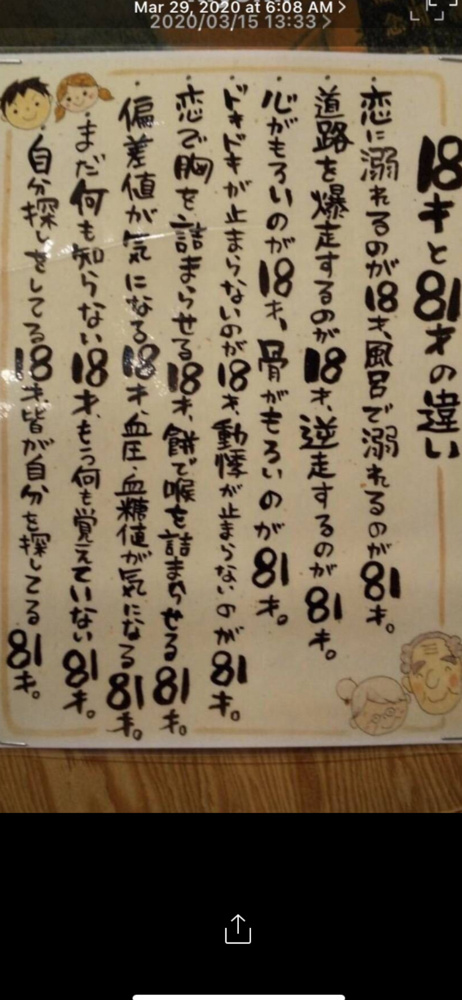 Mar 29, 2020 at 6:08 AM >
2020/03/15 13:33 >
18才と81才の違い
・恋に溺れるのが18才、風呂で溺れるのが81才。
・道路を爆走するのが18才、逆走するのが81才。
・心がもろいのが18才、骨がもろいのが81才。
・ドキドキが止まらないのが18才、動悸が止まらないのが81才。
・恋で胸を詰まらせる18才、餅で喉を詰まらせる81才。
・偏差値が気になる18才、血圧・血糖値が気になる81才。
・まだ何も知らない18才、もう何も覚えていない81才。
・自分探しをしてる18才、皆が自分を探してる81才。